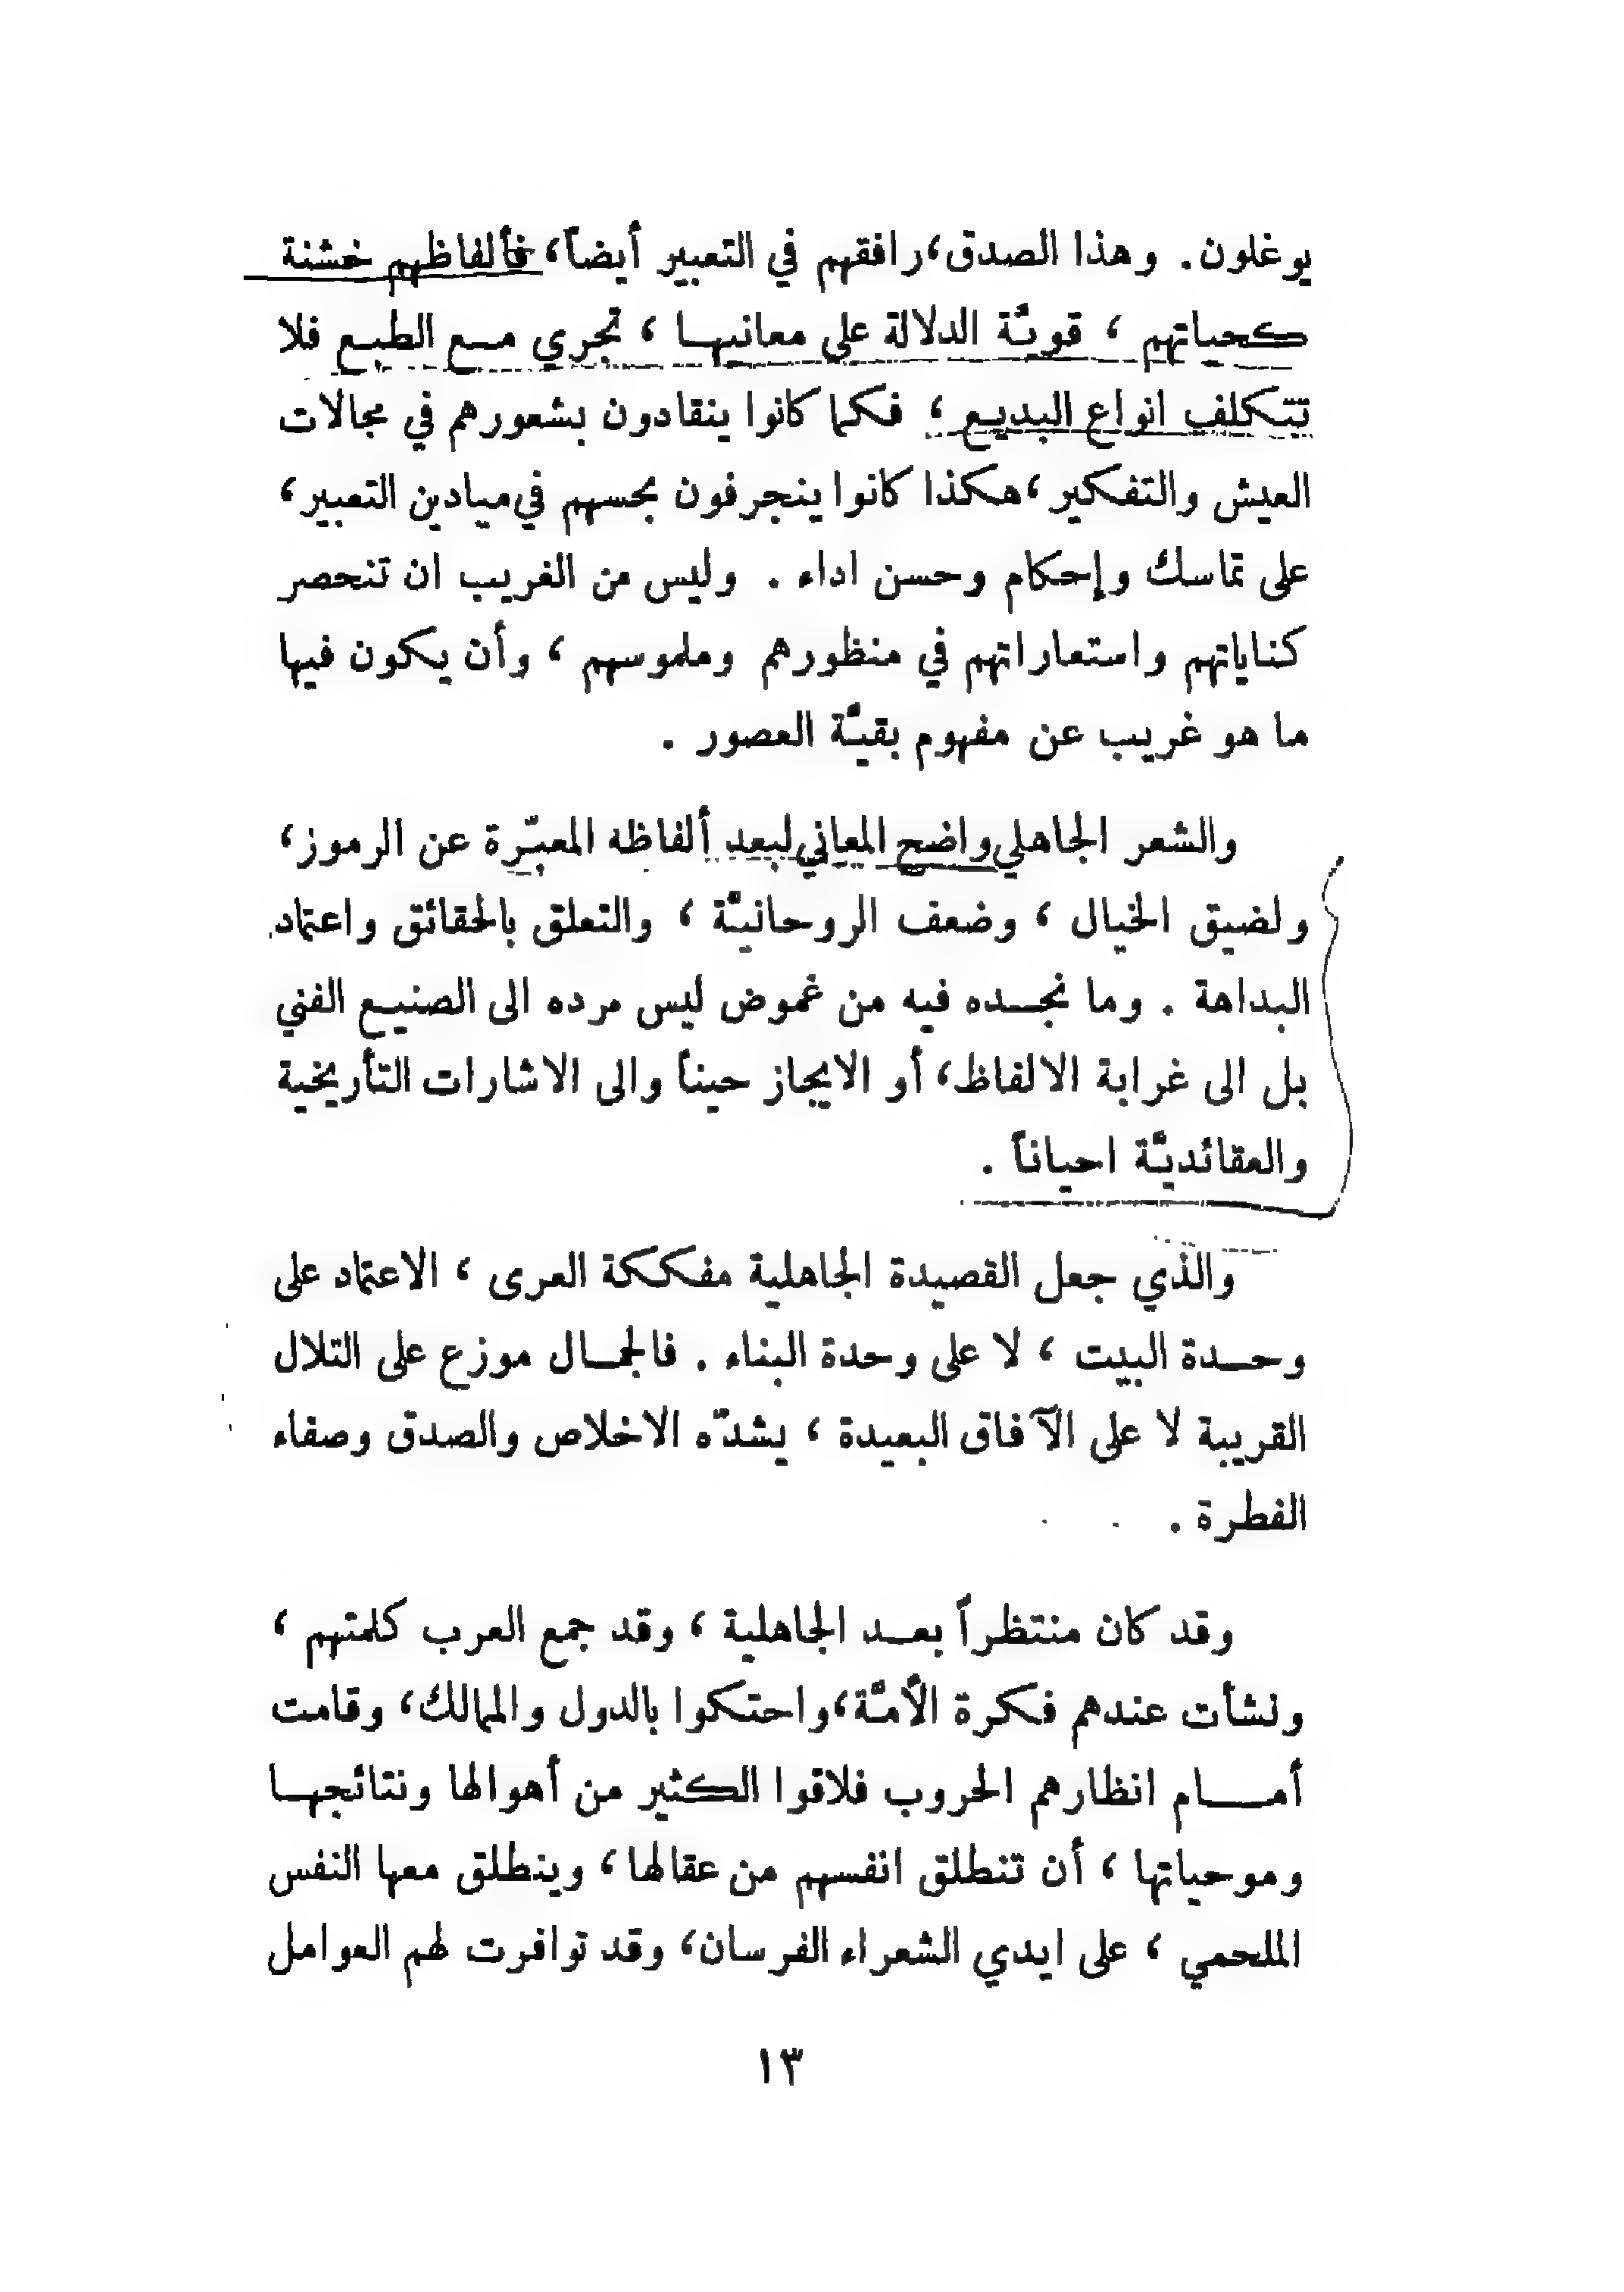 يوغلون. وهذا الصدق، رافقهم في التعبير أيضاً، فألفاظهم خشنة
كحياتهم ، قويّة الدلالة على معانيها ، تجري مع الطبع فلا
تتكلف انواع البديع ، فكما كانوا ينقادون بشعورهم في مجالات
العيش والتفكير ، هكذا كانوا ينجرفون بحسهم في ميادين التعبير ،
على تماسك وإحكام وحسن اداء . وليس من الغريب ان تنحصر
كناياتهم واستعاراتهم في منظورهم وملموسهم ، وأن يكون فيها
ما هو غريب عن مفهوم بقيّة العصور .
والشعر الجاهلي واضح المعاني لبعد ألفاظه المعبّرة عن الرموز ،
ولضيق الخيال ، وضعف الروحانيّة ، والتعلق بالحقائق واعتماد
البداهة . وما نجده فيه من غموض ليس مرده الى الصنيع الفني
بل الى غرابة الالفاظ ، أو الايجاز حيناً والى الاشارات التأريخية
والعقائديّة احياناً .
والذي جعل القصيدة الجاهلية مفككة العرى ، الاعتماد على
وحدة البيت ، لا على وحدة البناء . فالجمال موزع على التلال
القريبة لا على الآفاق البعيدة ، يشدّه الاخلاص والصدق وصفاء
الفطرة .
وقد كان منتظراً بعد الجاهلية ، وقد جمع العرب كلمتهم ،
ونشأت عندهم فكرة الأمّة ، واحتكوا بالدول والممالك ، وقامت
أمام انظارهم الحروب فلاقوا الكثير من أهوالها ونتائجها
وموحياتها ، أن تنطلق انفسهم من عقالها ، وينطلق معها النفس
الملحمي ، على ايدي الشعراء الفرسان ، وقد توافرت لهم العوامل
١٣